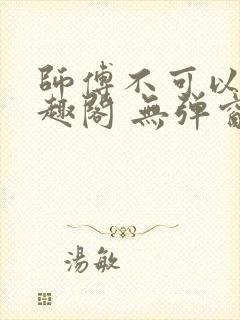 師傅不可以
趣閣 無彈窗
湯敏